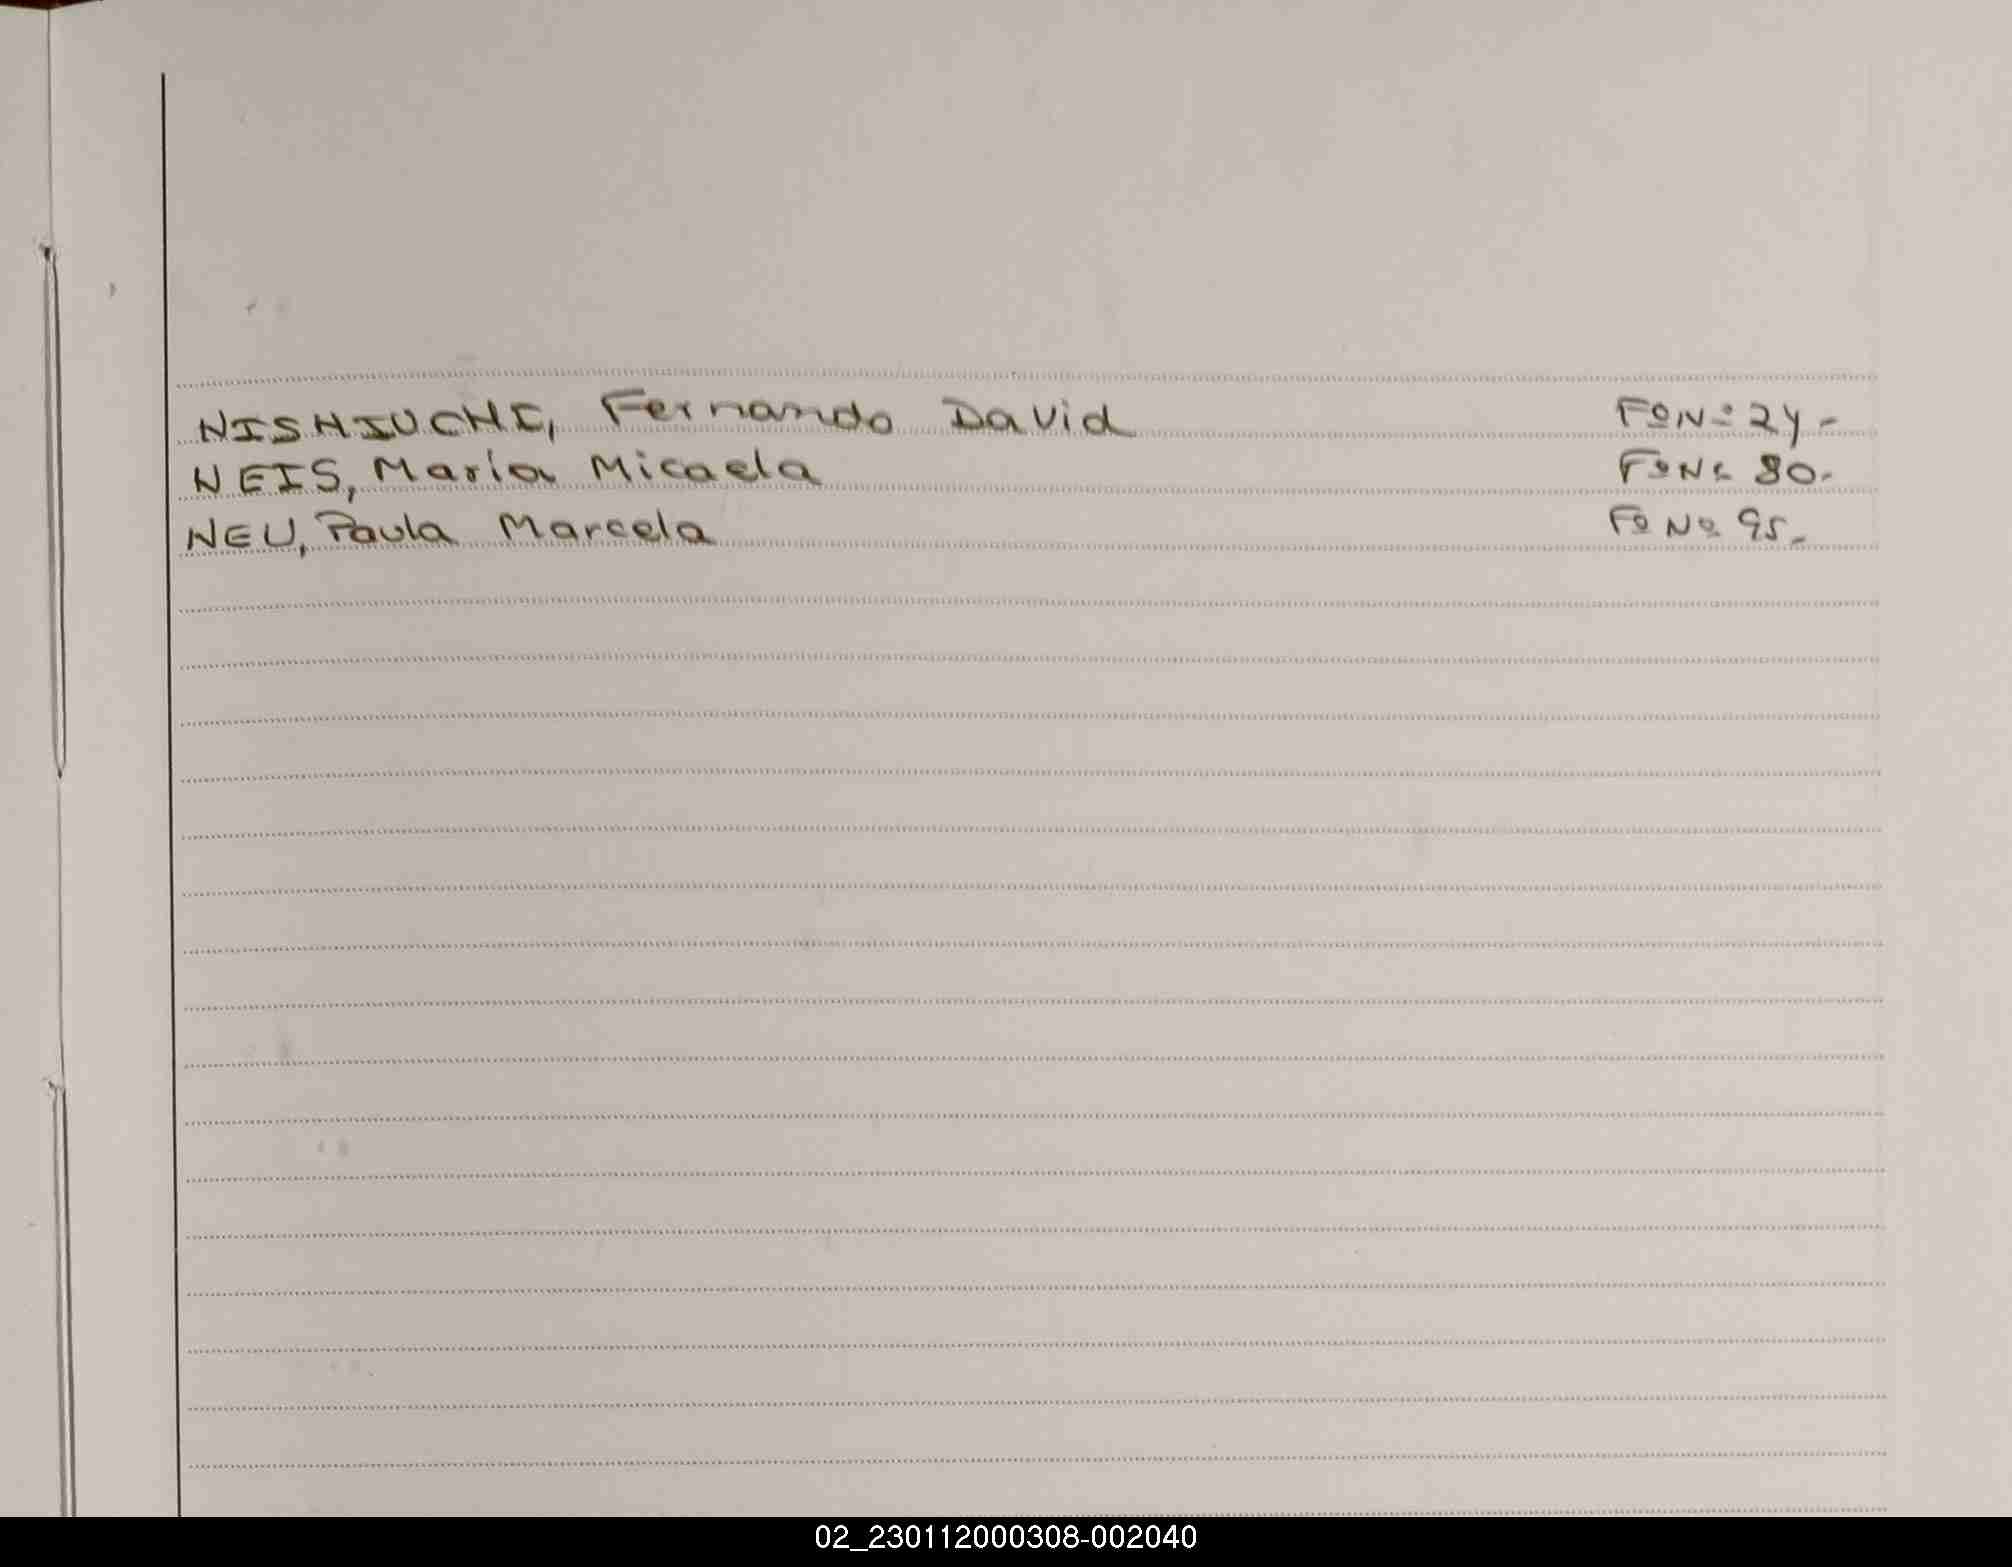 NISHIUCHI, Fernando David FºNº 24-
NEIS, María Micaela FºNº 80-
NEU, Paula Marcela Fº Nº 95-
02_230112000308-002040